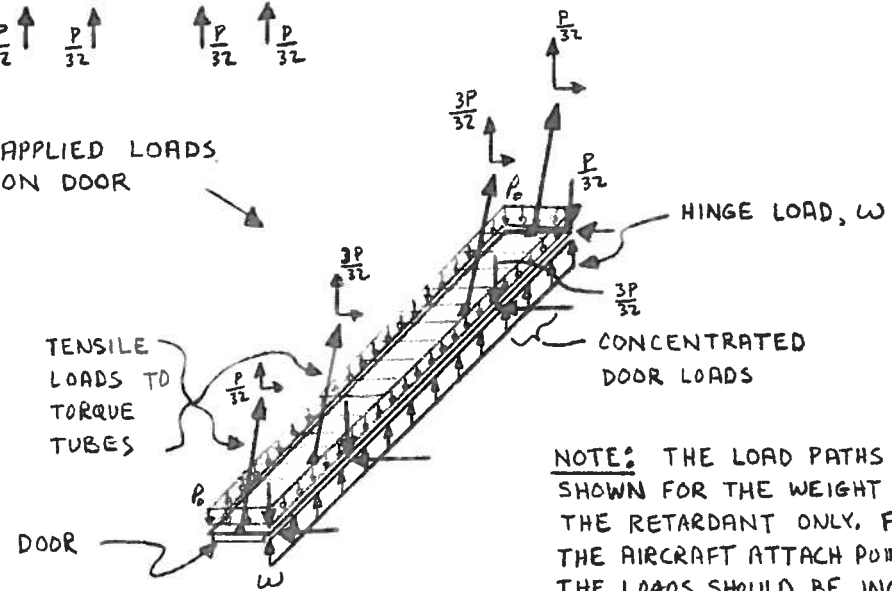 P/32 P/32 P/32 P/32
P/32
3P/32
APPLIED LOADS
ON DOOR
P₀
P/32
HINGE LOAD, ω
3P/32
3P/32
CONCENTRATED
DOOR LOADS
TENSILE
LOADS TO
TORQUE
TUBES
P/32
P₀
DOOR
ω
NOTE: THE LOAD PATHS
SHOWN FOR THE WEIGHT
THE RETARDANT ONLY.
THE AIRCRAFT ATTACH
THE LOADS SHOULD BE